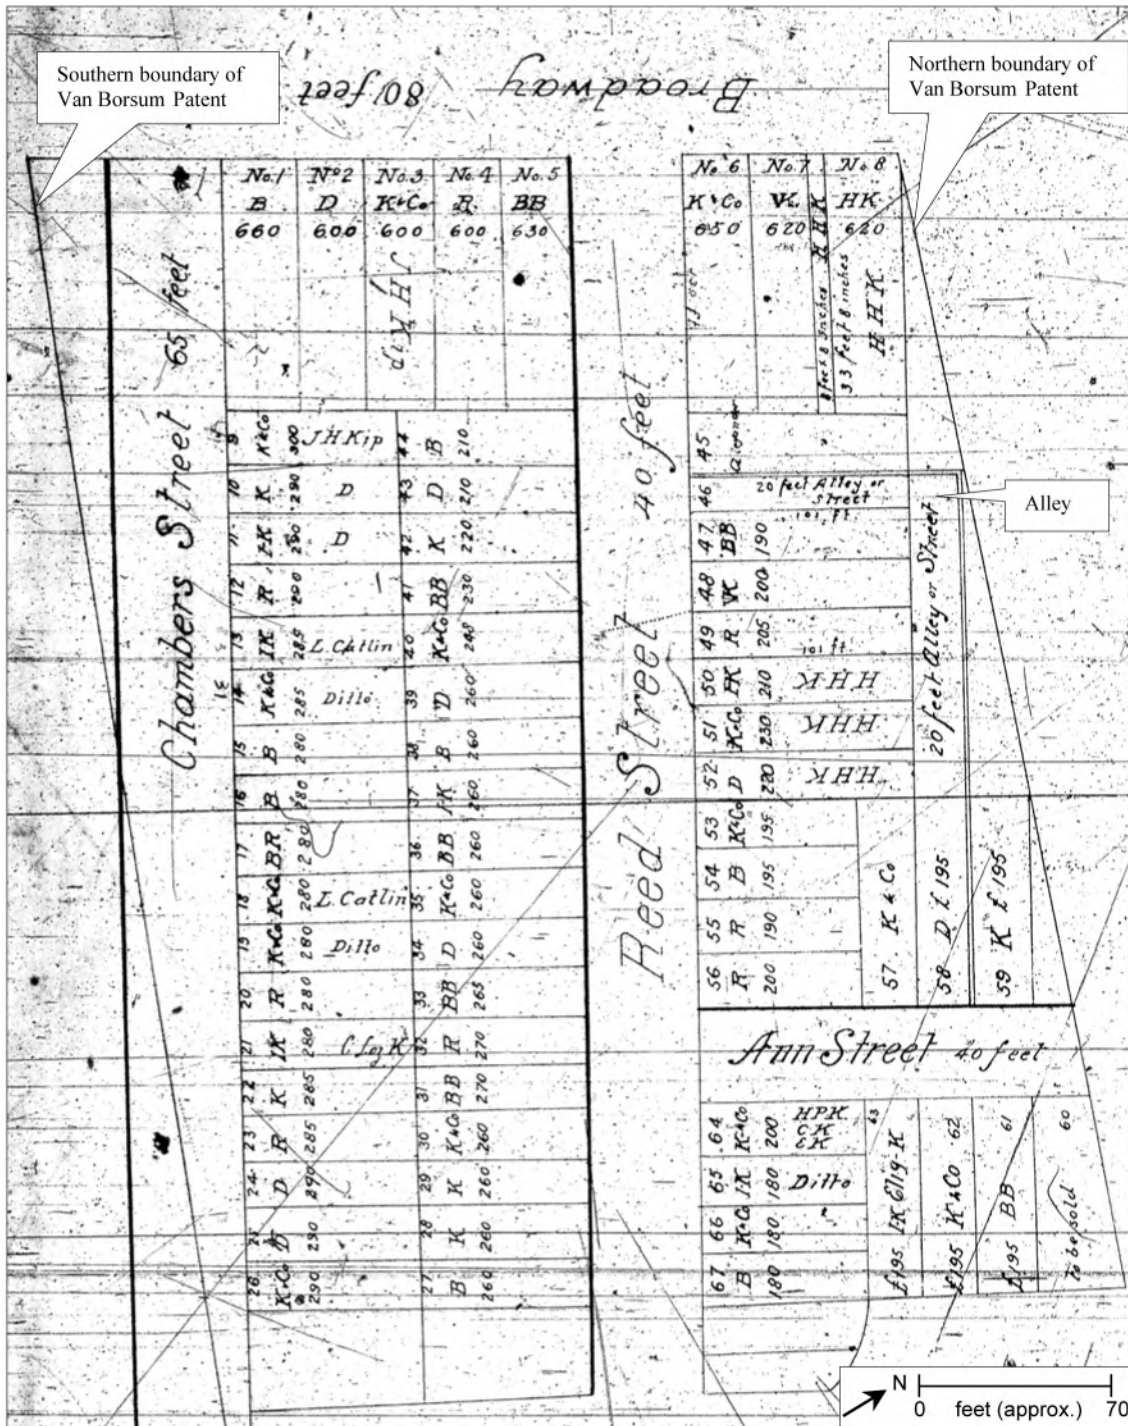 Southern boundary of
Van Borsum Patent
Northern boundary of
Van Borsum Patent
Broadway 80 feet
Chambers Street 65 feet
No. 1 No 2 No. 3 No. 4 No. 5
B D K&Co R BB
660 600 600 600 630
JH Kip
No 6 No. 7 No. 8
K&Co VK HK
650 620 620
HHK
8 feet 8 inches
33 feet 8 inches
HHK
9 K&Co 300 JHKip
10 K 290 D
11 D
12 R 290
13 IK 285 L. Catlin
14 K&Co 285 Ditto
15 B 280
16 B 280
17 BR 280
18 K&Co 280 L. Catlin
19 K&Co 280 Ditto
20 R 280
21 IK 280
22 K 285
23 R 285
24 D 290
25 D 290
26 K&Co 290
44 B 210
43 D 210
42 K 220
41 BB 230
40 K&Co 248
39 D 260
38 B 260
37 IK 260
36 BB 260
35 K&Co 260
34 D 260
33 BB 265
32 R 270
31 BB 270
30 K&Co 260
29 K 260
28 K 260
27 B 260
Reed Street 40 feet
45
46 20 feet Alley or
Street
101 ft.
47 BB 190
48 VK 200
49 R 205
101 ft.
50 210 HHK
51 K&Co 230 HHK
52 D 220 HHK
53 K&Co 195
54 B 195
55 R 190
56 R 200
20 feet Alley or Street
Alley
57 K&Co
58 D £195
59 K £195
Ann Street 40 feet
64 K&Co 200 HPK
CK
65 IK 180 Ditto
66 K&Co 180
67 B 180
63 IK £195
62 K&Co £195
61 BB £195
60 To be sold
N
0 70
feet (approx.)